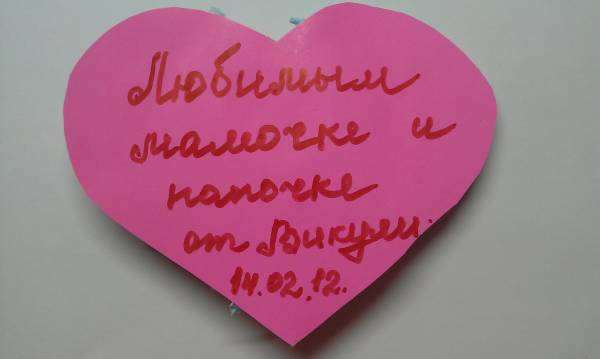 Любимым
мамочке и
папочке
от Викули.
14.02.12.